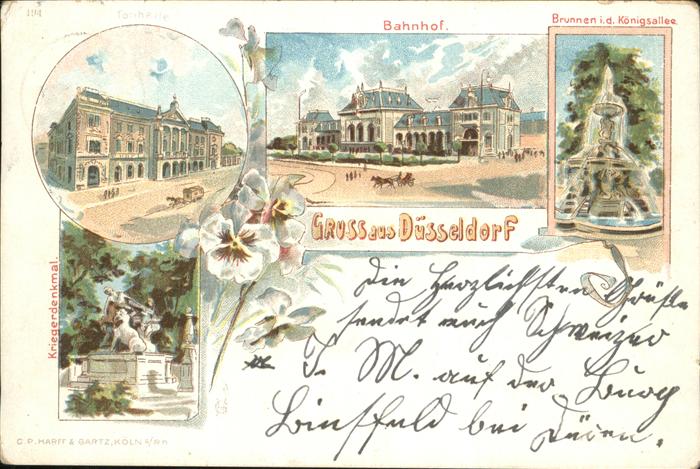 194
Tonhalle
Bahnhof.
Brunnen i.d. Königsallee
GRUSS aus DÜSSELDORF
Kriegerdenkmal.
Die Herzlichsten Grüße
sendet euch Schweizer
T. M. auf der Burg
Binsfeld bei Düren.
C.P. HARFF & GARTZ, KÖLN a/Rh